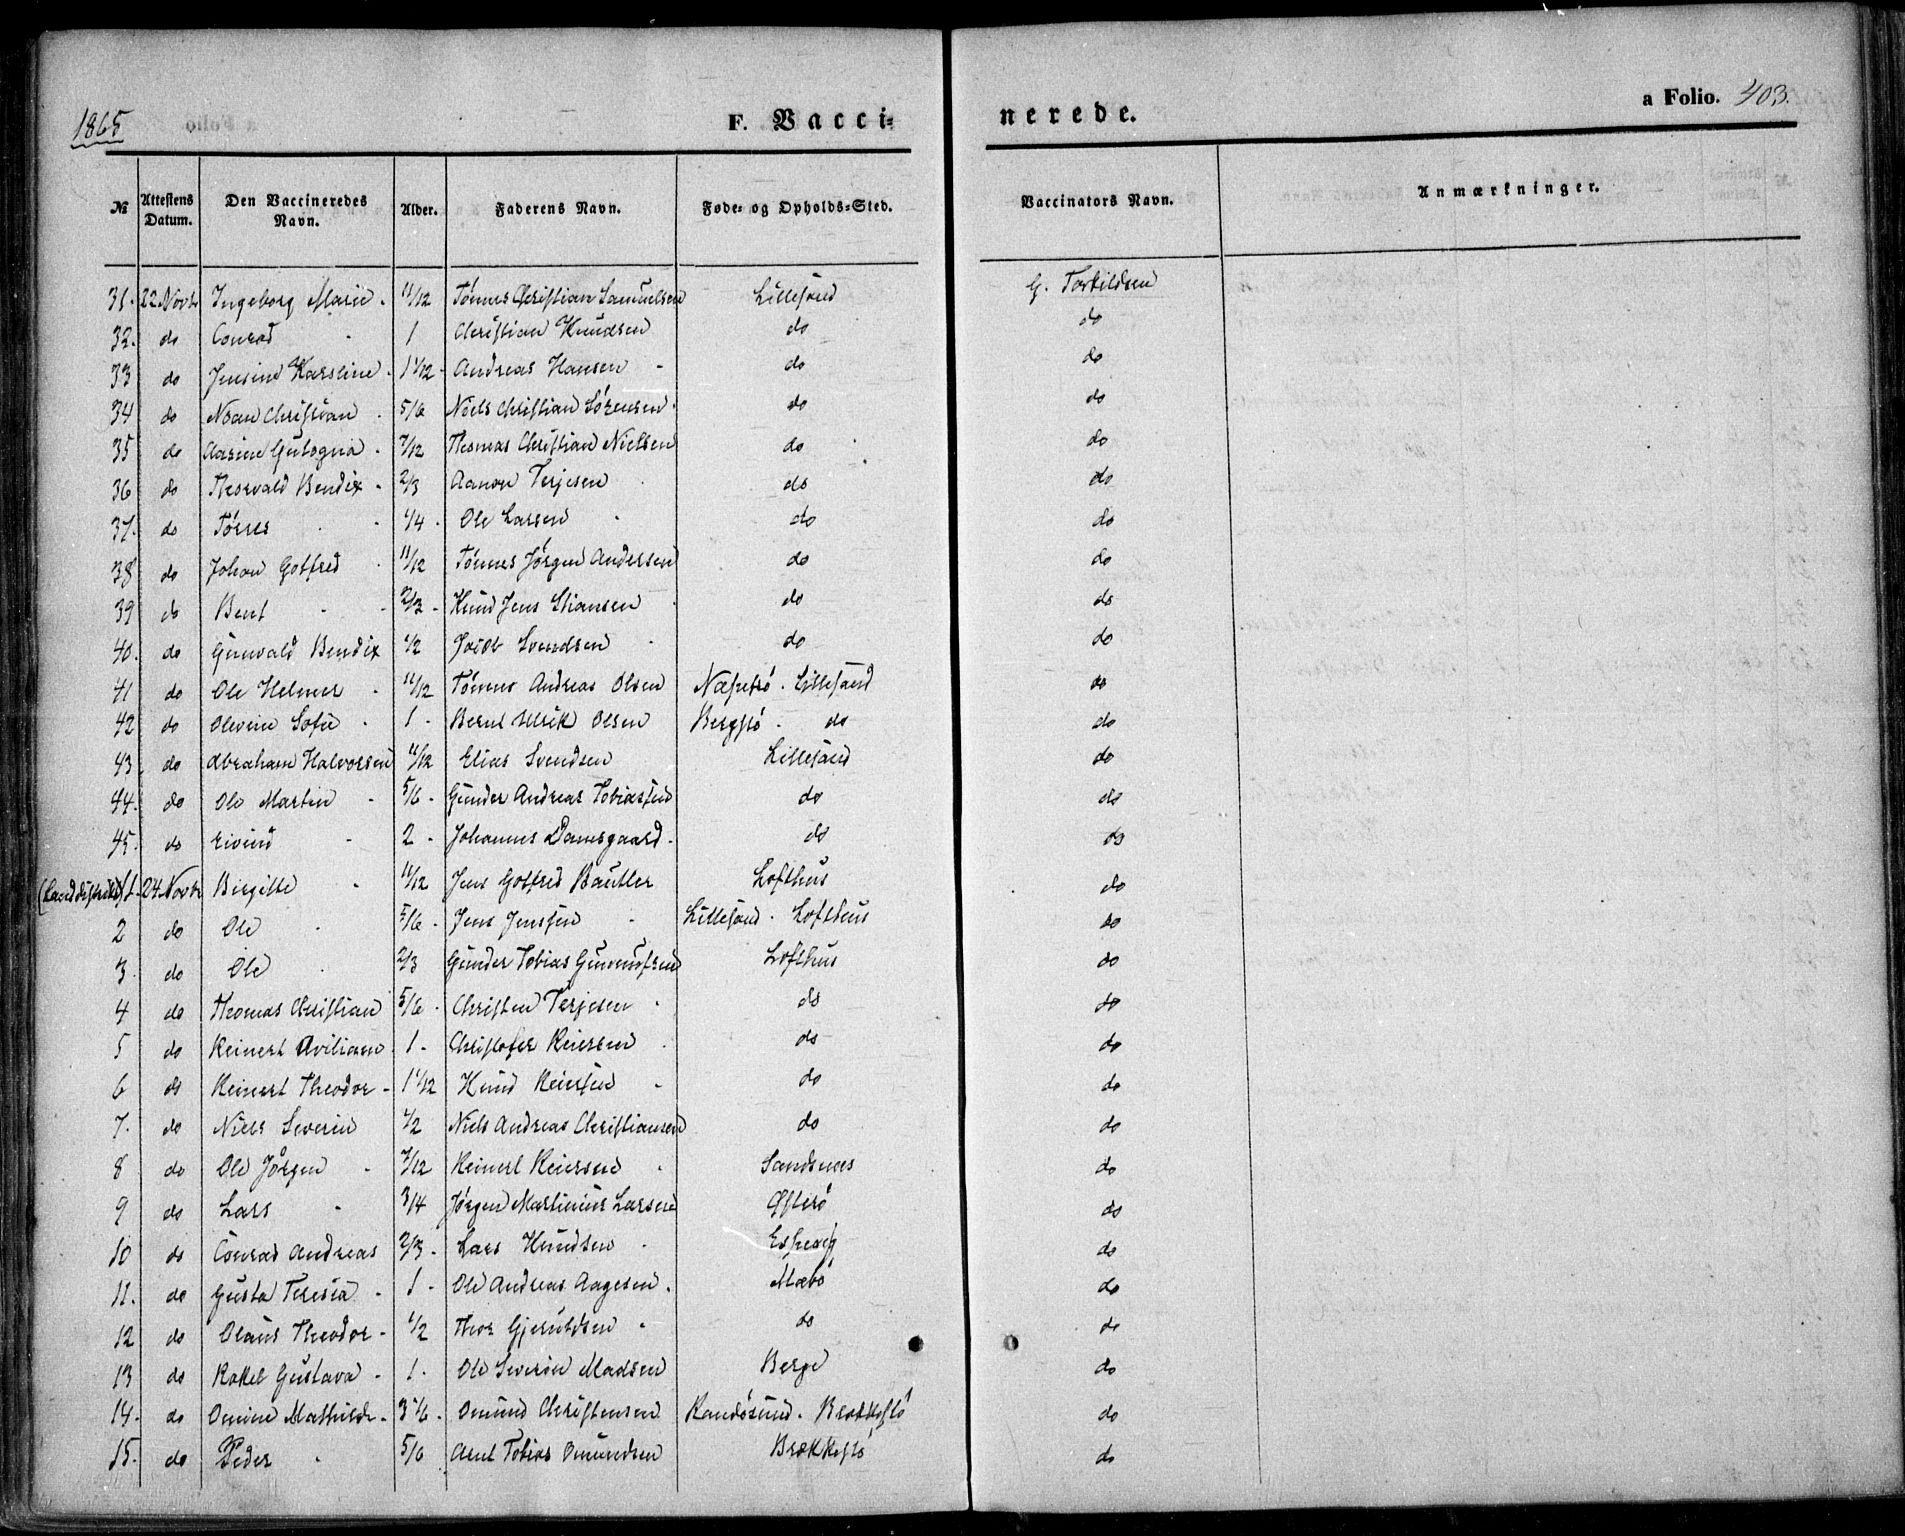 1865
F. Vacci=
nerede.
a Folio. 403.
№ Attestens Datum. Den Vaccineredes Navn. Alder. Faderens Navn. Føde- og Opholds-Sted. Vaccinators Navn. Anmærkninger.
31. 22 Novbr Ingeborg Marie 11/12 Tønnes Christian Samuelsen Lillesand G. Torkildsen
32. do Conrad 1 Christian Knudsen do do
33 do Jensine Karoline 1 1/12 Andreas Hansen do do
34 do Christian 5/6 Niels Christian Sørensen do do
35 do 7/12 Thomas Christian Nielsen do do
36 do Thorvald Bendix 2/3 Aanon Terjesen do do
37. do Tørres 1/4 Ole Larsen do do
38 do Johan Gotfred 11/12 Tønnes Jørgen Andersen do do
39 do Bent 2/3 Knud Jens Stiansen do do
40. do Gunvald Bendix 1/2 Jacob Svendsen do do
41 do Ole Helmer 11/12 Tønnes Andreas Olsen Lillesand do
42 do Olevine Sofie 1 Bernt Ulrik Olsen Bergsø do do
43 do Abraham Halvorsen 11/12 Elias Svendsen Lillesand do
44. do Ole Martin 5/6 Gunder Andreas Tobiassen do do
45. do Eivind 2 Johannes Damsgaard do do
(Landdistrikt) 1. 24. Novbr Birgitte 11/12 Jens Gotfred Lofthus do
2 do Ole 5/6 Jens Jenssen Lillesand. Lofthus do
3. do Ole 2/3 Gunder Tobias Lofthus do
4 do Thomas Christian 5/6 Christen Terjesen do do
5 do Reinert 1 Christofer Reiersen do do
6 do Reinert Theodor 1 1/12 Knud Reiersen do do
7. do Niels Severin 1/2 Niels Andreas Christiansen do do
8 do Ole Jørgen 7/12 Reinert Reiersen Sandsnes do
9 do Lars 3/4 Jørgen Martinius Larsen do
10 do Conrad Andreas 2/3 Lars Knudsen Espevig do
11. do Gusta Teresia 1 Ole Andreas Aagesen Mæbø do
12 do Olaus Theodor 1/2 Thor Gjeruldsen do do
13 do Rakel Gustava 1. Ole Severin Madsen Berge do
14. do Omine Mathilde Omund Christensen Randøsund. Brækkestø do
15. do Peder 5/6 Arnt Tobias Omundsen Brækkestø do